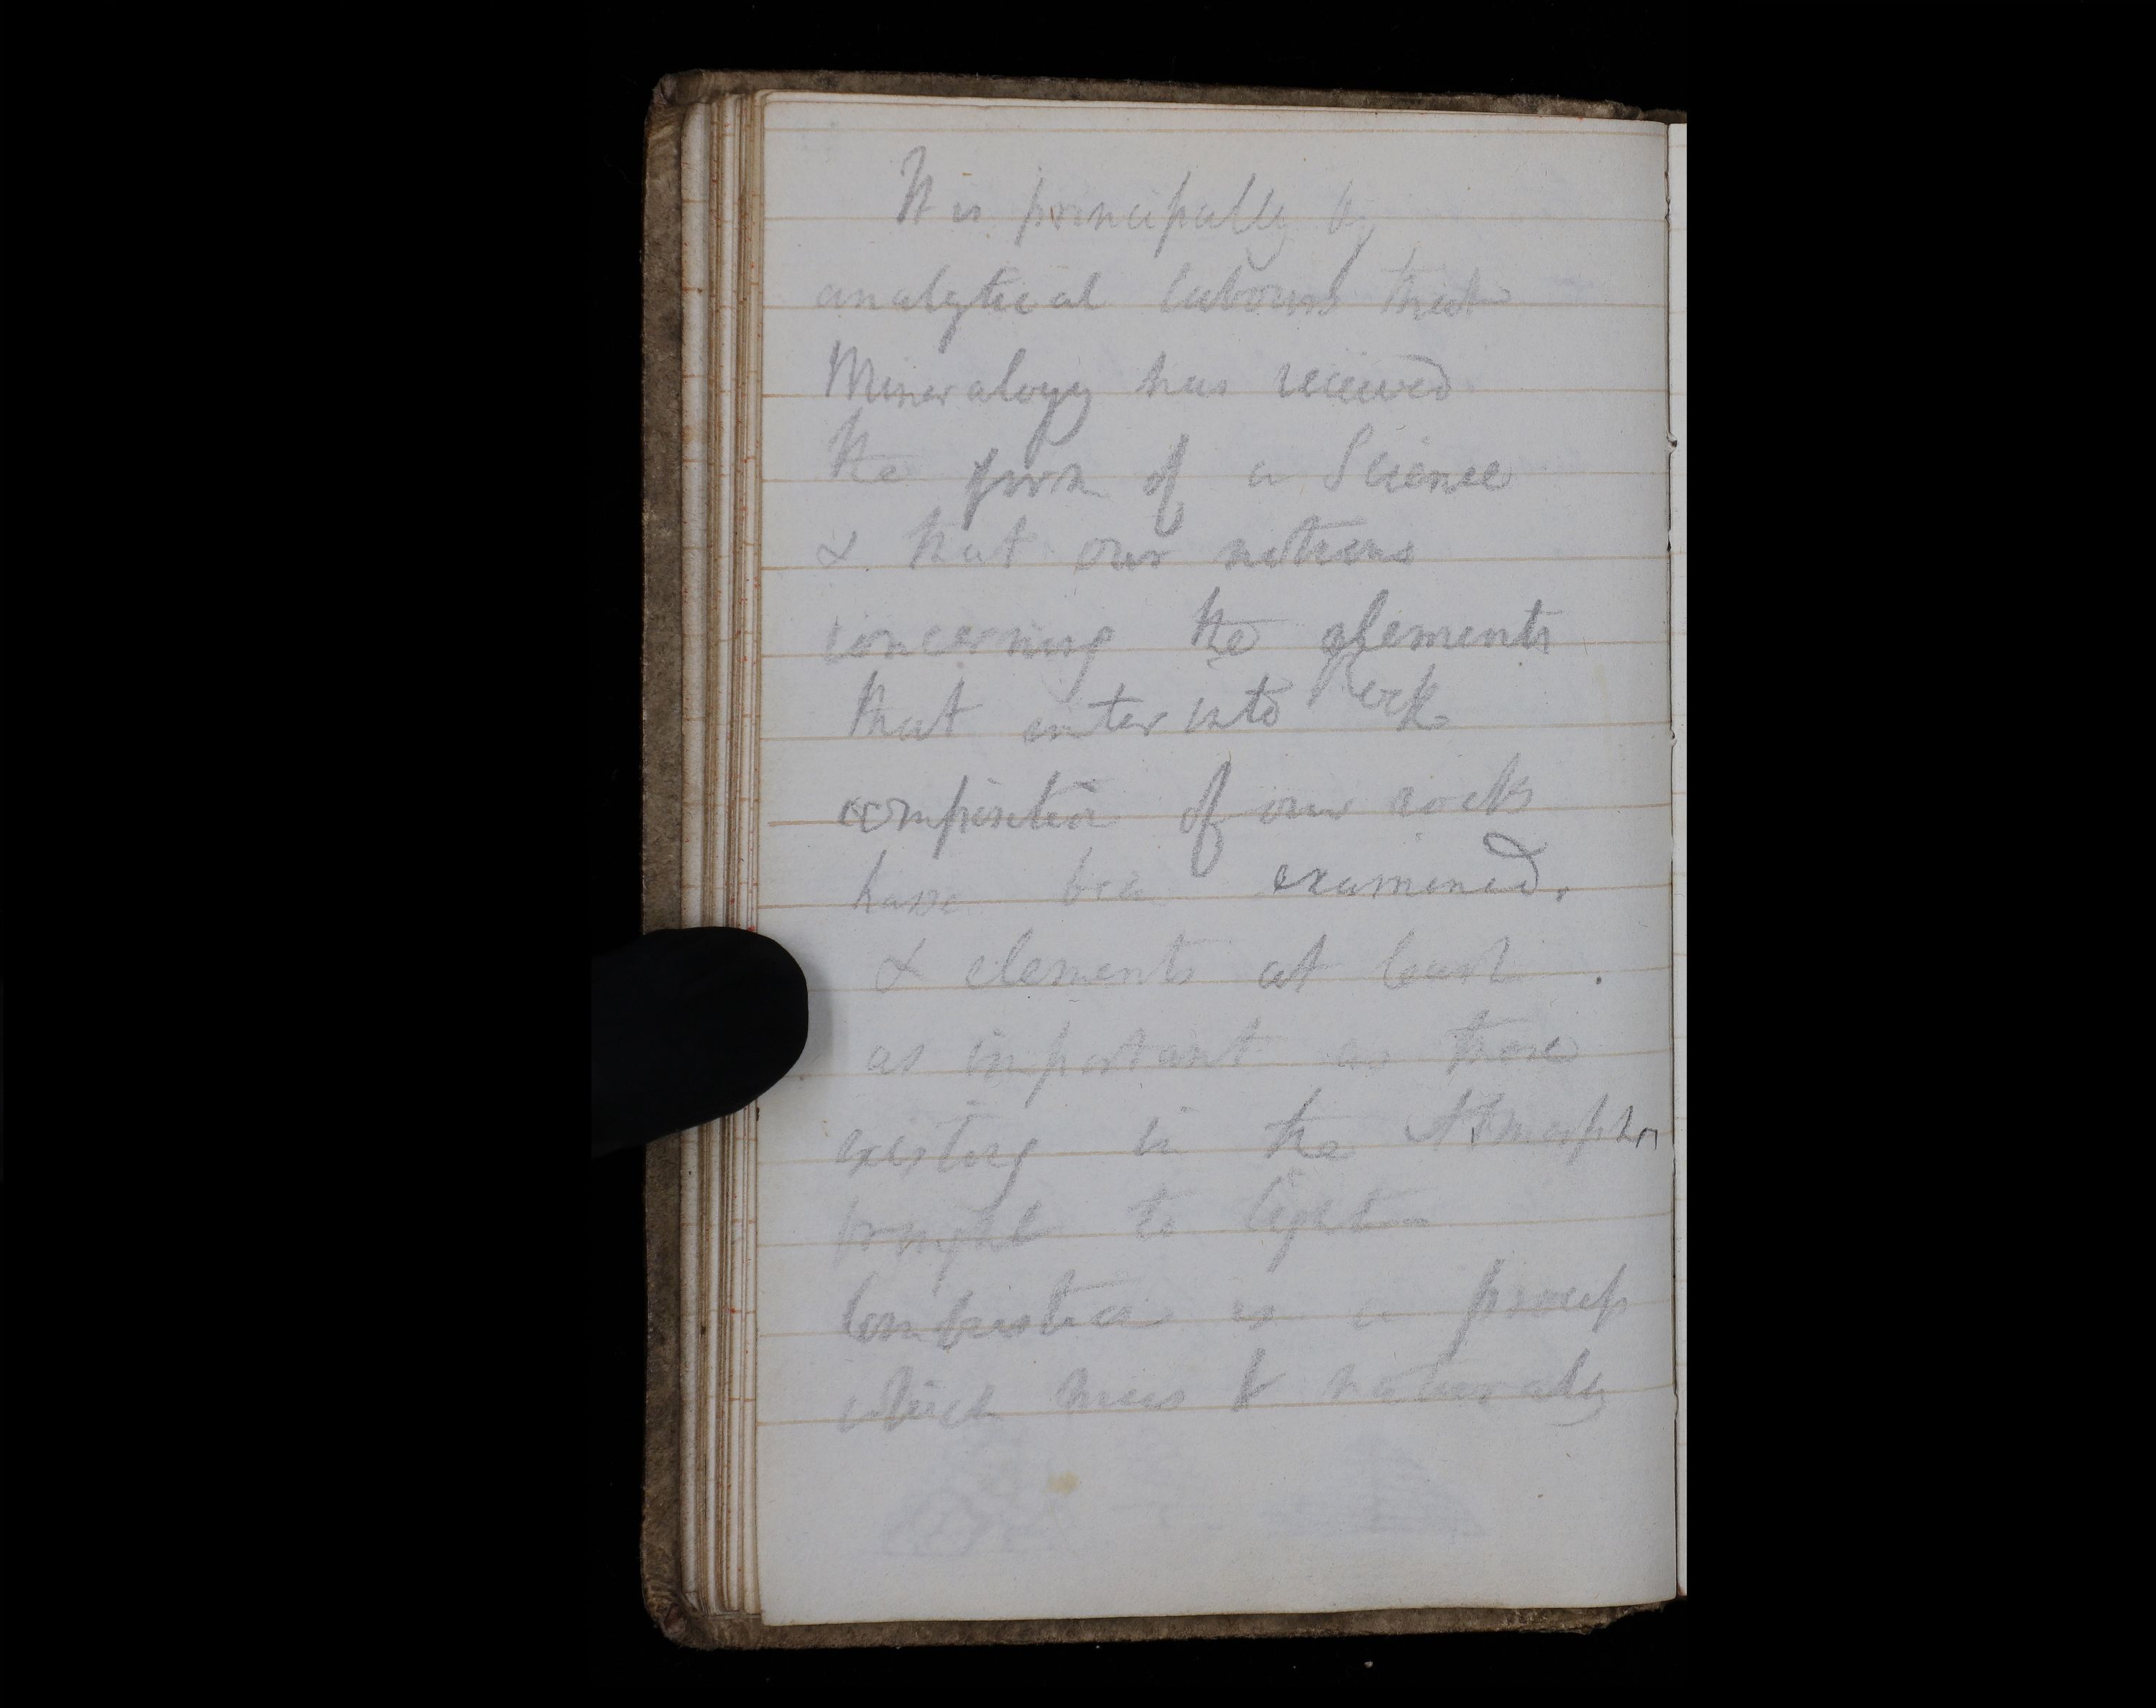 It is principally by
analytical labours that
Mineralogy has received
the form of a Science
& that our notions
concerning the elements
that enter into
composition of our rocks
have been examined.
& elements at least
as important as those
existing in the Atmosphr
brought to light
Combustion is a process
which naturally